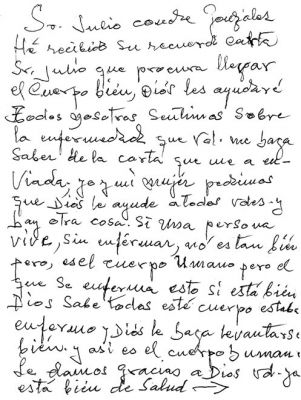 Sr. Julio conde Gonzáles
Hé recibido su recuerd carta
Sr. Julio que procura llegar
el cuerpo bién, Diós les ayudaré
todos nosotros sentimos sobre
la enfermedad que vd. me haga
saber de la carta que me a en-
viada. yo y mi mujér pedimos
que Diós le ayude a todos vdes- y
hay otra cosa. Si una persona
vive, sin enférmar, no estan bién
pero, es el cuerpo Umano pero el
que se enferma esto si está bién
Dios sabe todos esté cuerpo estaba
enfermo y Diós le haga levantarse
bién. y así es el cuerpo humano.
Le damos gracias a Dios vd- ya
está bién de Salud →